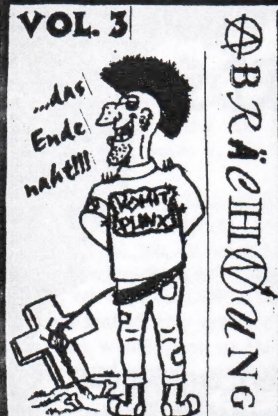 VOL. 3
...das
Ende
naht!!!
PUNX
ABRäCHNuNG